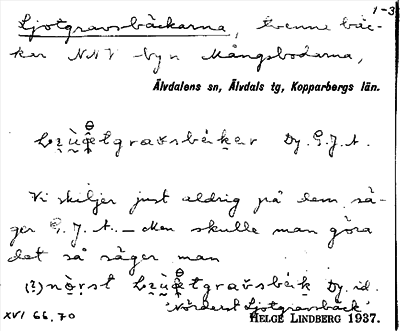 1-3
Ljotgravsbäckarna, tvenne bäc-
kar NNV byn Mångsbodarna,
Älvdalens sn, Älvdals tg, Kopparbergs län.
Dy. G.J.A.
Vi skiljer just aldrig på dem sä-
ger G.J.A. — Men skulle man göra
det så säger man
(?) Dy. id.
"Nörderst Ljotgravsbäck"
XVI 66.70 HELGE LINDBERG 1937.